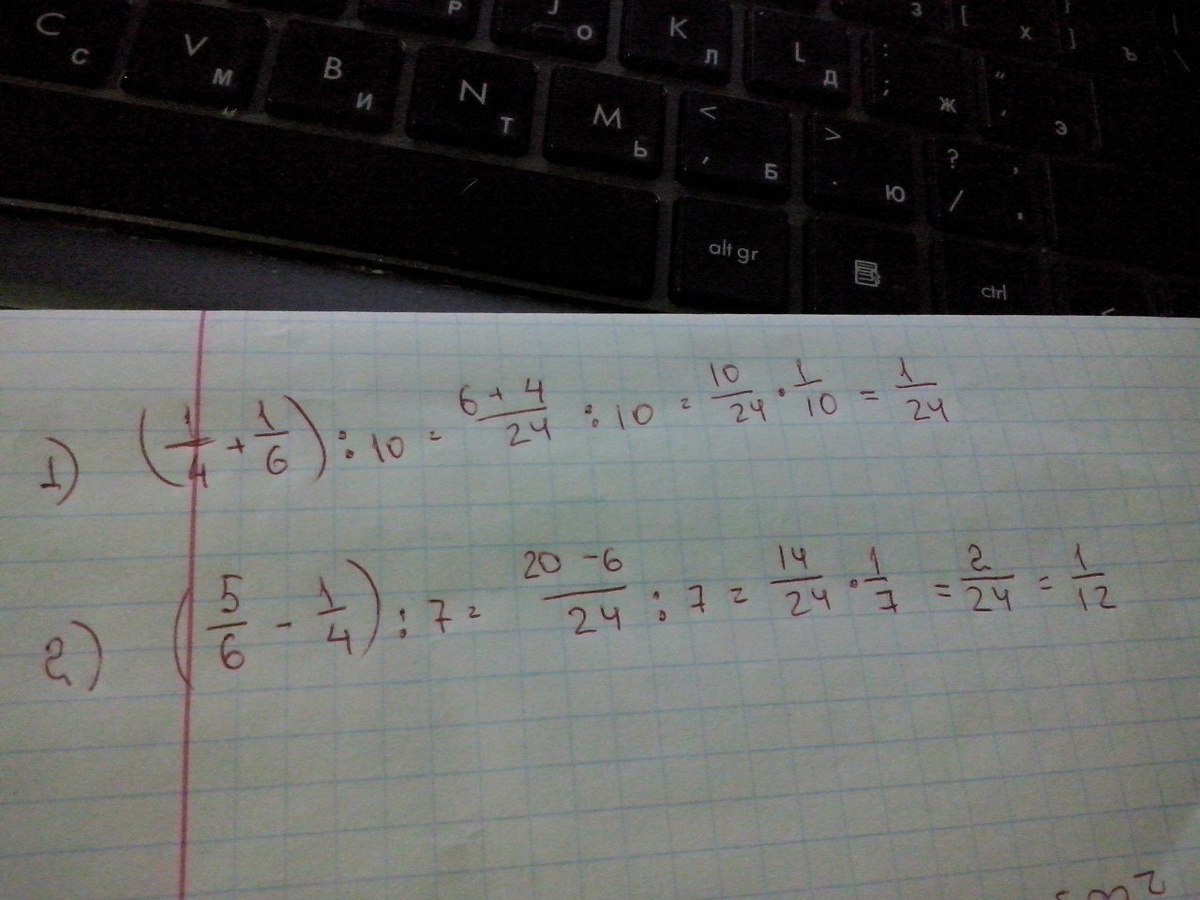 P J O
C C V M B И N T M Ь < , Б K Л L Д : ; Ж " ' Э З [ X ] Ъ \
> . Ю ? / , .
alt gr ctrl
1) (1/4 + 1/6) : 10 = 6 + 4/24 : 10 = 10/24 · 1/10 = 1/24
2) (5/6 - 1/4) : 7 = 20 - 6/24 : 7 = 14/24 · 1/7 = 2/24 = 1/12